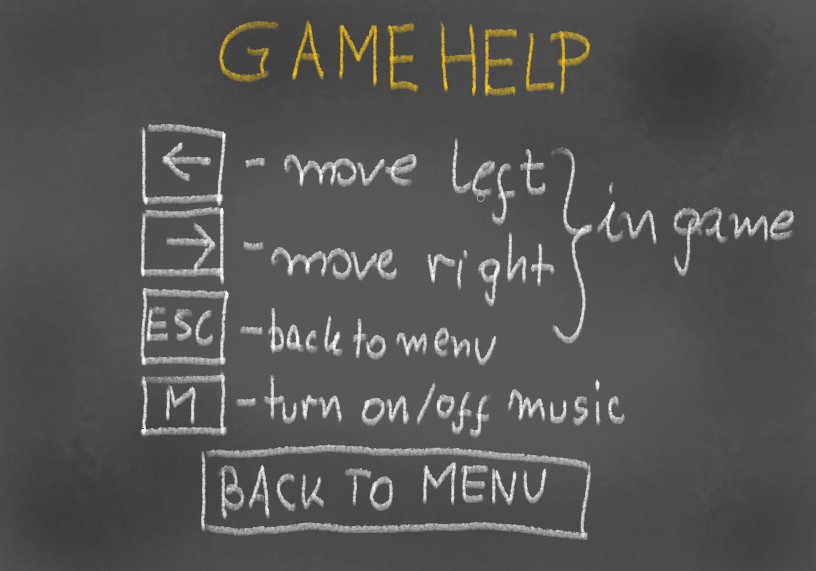 GAME HELP
← - move left
→ - move right
in game
ESC - back to menu
M - turn on/off music
BACK TO MENU